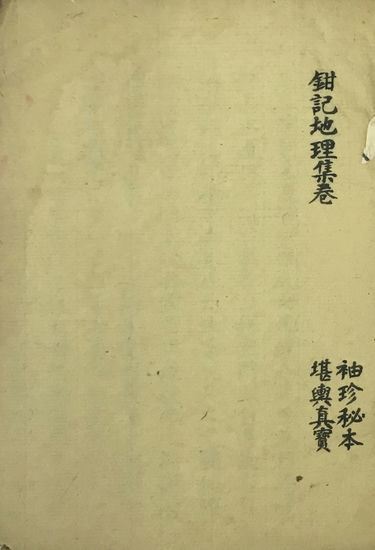 鉗記地理集卷
袖珍秘本
堪輿真寶